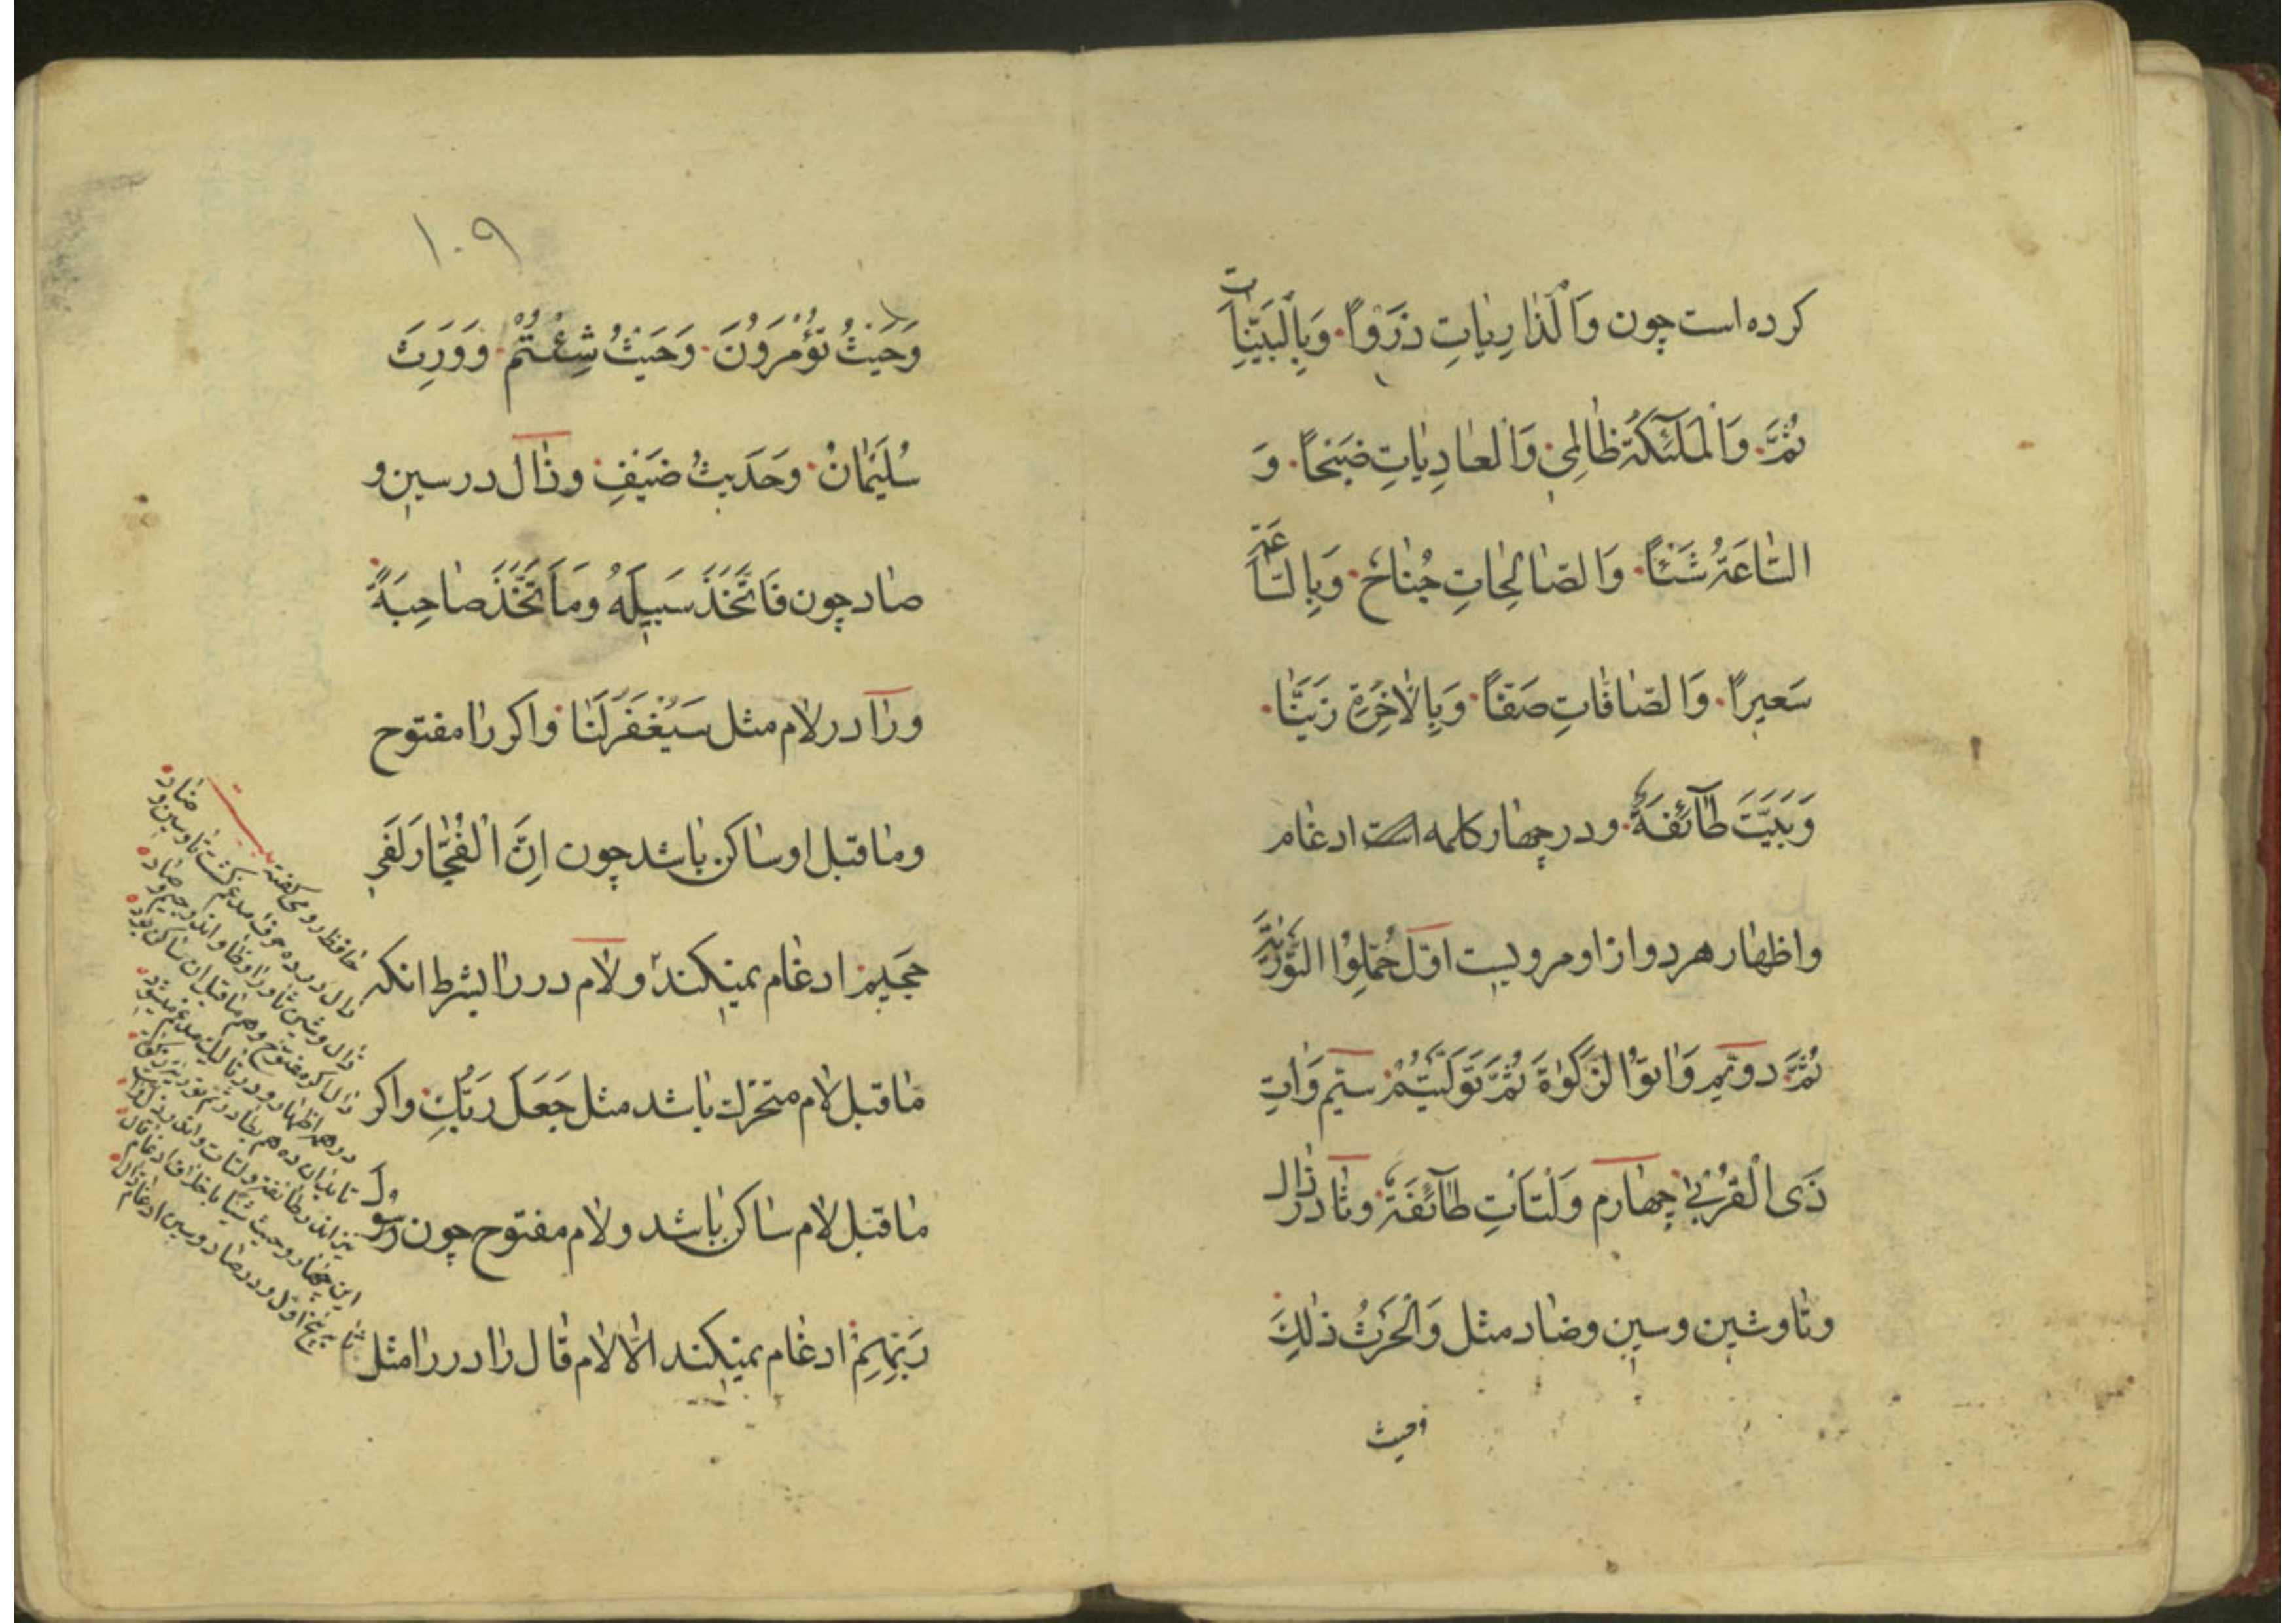 کرده است چون وَالذّٰارِیٰاتِ ذَرْوًا وَبِالْبَیِّنٰاتِ
ثُمَّ وَالْمَلٰٓئِکَةُ ظٰالِمِیْ وَالْعٰادِیٰاتِ ضَبْحًا وَ
السّٰاعَةِ شَیْئًا وَالصّٰالِحٰاتِ جُنٰاحٌ وَبِالسّٰاعَةِ
سَعیرًا وَالصّٰافّٰاتِ صَفًّا وَبِالْاٰخِرَةِ زَیَّنّٰا
وَبَیَّتَ طٰآئِفَةٌ ودر چهار کلمه است ادغام
واظهار هر دو از او مرویست اوّل حُمِّلُوا التَّوْرٰیةَ
ثُمَّ دوّیم وَاٰتوُا الزَّکٰوةَ ثُمَّ تَوَلَّیْتُمْ سیّم وَاٰتِ
ذَی الْقُرْبیٰ چهارم وَلْتَأْتِ طٰآئِفَةٌ وثا در ذال
وتا وشین وسین وضاد مثل وَالْحَرْثِ ذٰلِكَ
وحیث
۱۰۹
وَحَیْثُ تُؤْمَروُنَ وَحَیْثُ شِئْتُمْ وَوَرِثَ
سُلَیْمٰانُ وحَدَیثُ ضَیْفِ وذٰال در سین و
صاد چون فَاتَّخَذَ سَبیلَهُ ومَا اتَّخَذَ صٰاحِبَةً
ورٰا در لام مثل سَیُغْفَرُ لَنٰا واکر را مفتوح
ومٰا قبل او سٰاکن بٰاشد چون اِنَّ الْفُجّٰارَ لَفی
جَحیمٍ ادغام نمیکند ولٰام در رٰا بشرط انکه
مٰا قبل لام متحرّك بٰاشد مثل جَعَلَ رَبُّكِ واکر
مٰا قبل لام سٰاکن بٰاشد ولام مفتوح چون رَسُولَ
رَبِّهِمْ ادغام نمیکند الّا لام قٰال رٰا در رٰا مثل
حافظ رومی کفته بیت
دال در ده حرف مدغم کشت تا وسین و ضاد
ذال وشین ثا وزا وظا واند جیم و صاد
دال اکر مفتوح وهم ما قبل ان ساکن بود